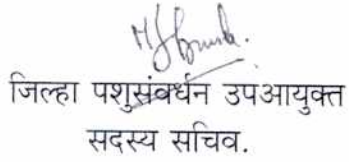 जिल्हा पशुसंवर्धन उपआयुक्त
सदस्य सचिव.